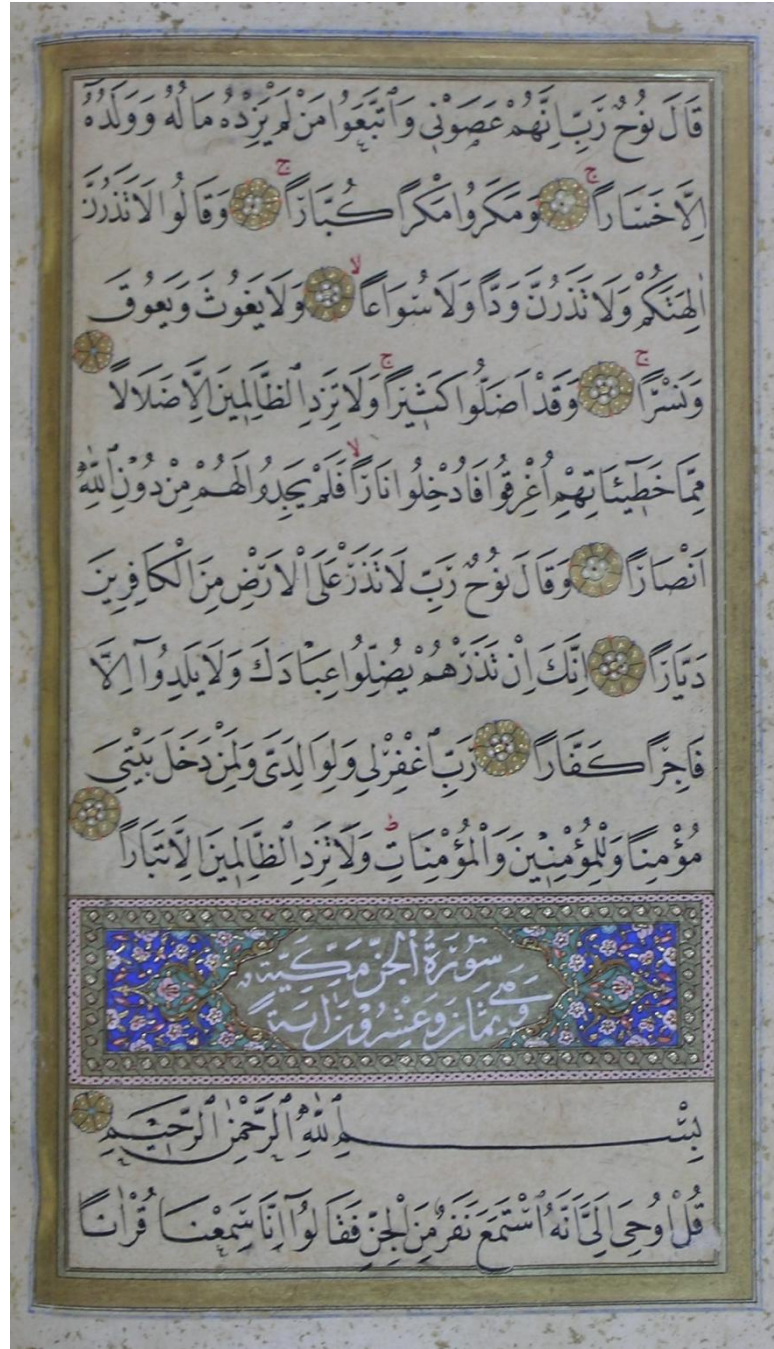 قَالَ نُوحٌ رَبِّ اِنَّهُمْ عَصَوْنٖي وَاتَّبَعُوا مَنْ لَمْ يَزِدْهُ مَالُهُ وَوَلَدُهُٓ
اِلَّا خَسَاراًۚ وَمَكَرُوا مَكْراً كُبَّاراًۚ وَقَالُوا لَا تَذَرُنَّ
اٰلِهَتَكُمْ وَلَا تَذَرُنَّ وَدّاً وَلَا سُوَاعاًۙ وَلَا يَغُوثَ وَيَعُوقَ
وَنَسْراًۚ وَقَدْ اَضَلُّوا كَثٖيراًۚ وَلَا تَزِدِ الظَّالِمٖينَ اِلَّا ضَلَالاً
مِمَّا خَطٖٓيـَٔاتِهِمْ اُغْرِقُوا فَاُدْخِلُوا نَاراًۙ فَلَمْ يَجِدُوا لَهُمْ مِنْ دُونِ اللّٰهِ
اَنْصَاراً وَقَالَ نُوحٌ رَبِّ لَا تَذَرْ عَلَى الْاَرْضِ مِنَ الْكَافِرٖينَ
دَيَّاراً اِنَّكَ اِنْ تَذَرْهُمْ يُضِلُّوا عِبَادَكَ وَلَا يَلِدُٓوا اِلَّا
فَاجِراً كَفَّاراً رَبِّ اغْفِرْلٖي وَلِوَالِدَيَّ وَلِمَنْ دَخَلَ بَيْتِيَ
مُؤْمِناً وَلِلْمُؤْمِنٖينَ وَالْمُؤْمِنَاتِؕ وَلَا تَزِدِ الظَّالِمٖينَ اِلَّا تَبَاراً
سُورَةُ الْجِنِّ مَكِّيَّةٌ
وَهِيَ ثَمَانٍ وَعِشْرُونَ اٰيَةً
بِسْمِ اللّٰهِ الرَّحْمٰنِ الرَّحٖيمِ
قُلْ اُوحِيَ اِلَيَّ اَنَّهُ اسْتَمَعَ نَفَرٌ مِنَ الْجِنِّ فَقَالُٓوا اِنَّا سَمِعْنَا قُرْاٰناً